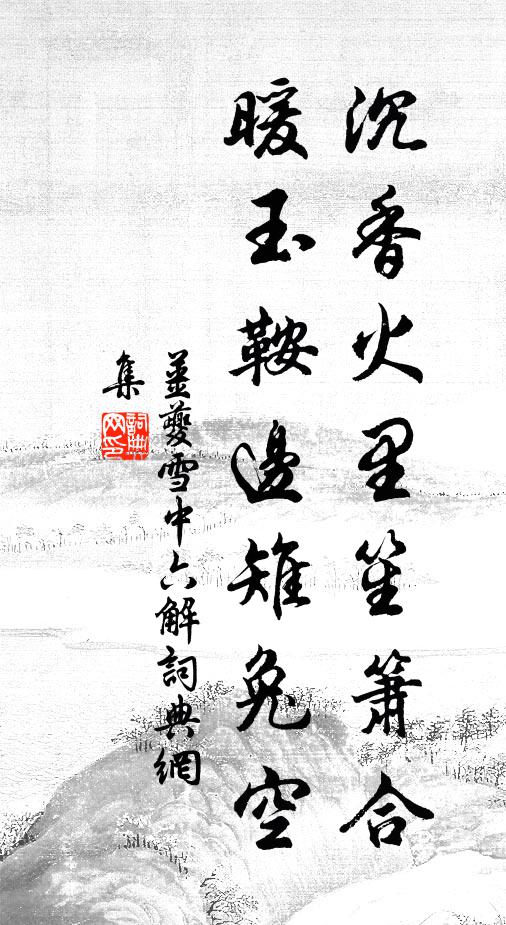 沉香火里笙簫合
暖玉鞍邊雉兔空
姜夔雪中六解詞典網
集
詞典網印